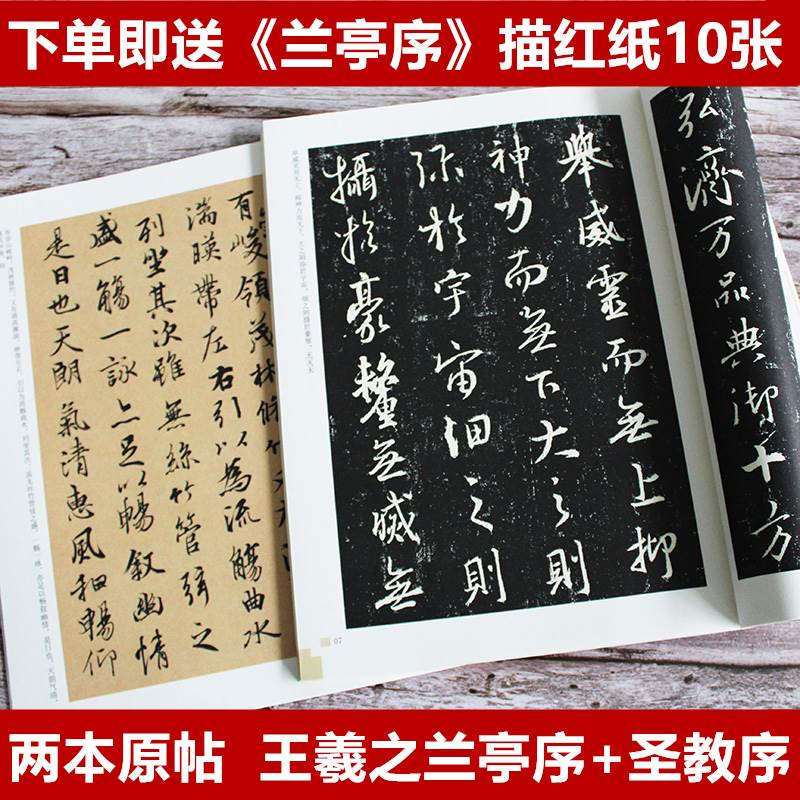 下单即送《兰亭序》描红纸10张
弘濟万品典御十方
舉威靈而無上抑
神力而無下大之則
弥於宇宙細之則
攝於豪釐無滅無
07
有峻領茂林脩竹
湍暎帶左右引以為流觴曲水
列坐其次雖無絲竹管弦之
盛一觴一詠亦足以暢叙幽情
是日也天朗氣清惠風和暢仰
两本原帖 王羲之兰亭序+圣教序